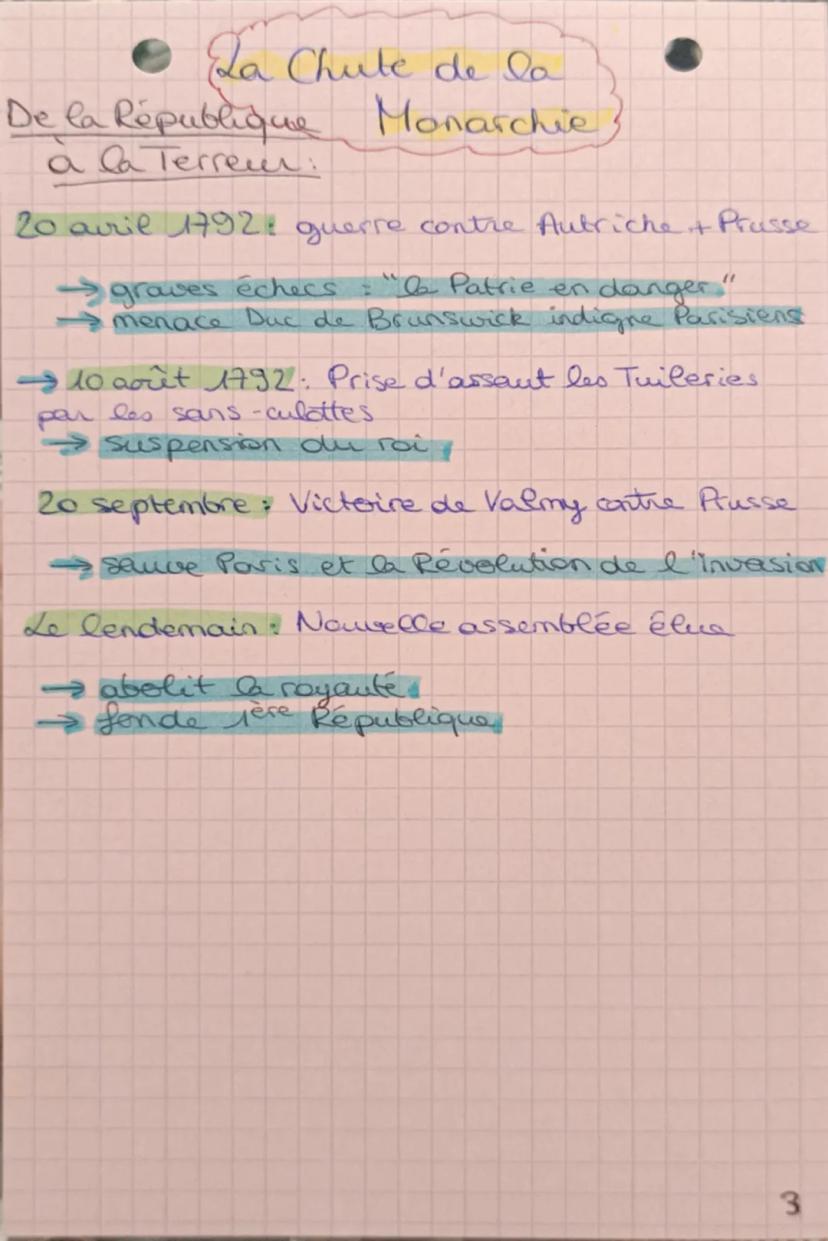 La Chute de la
Monarchie
De la République
à la Terreur :
20 avril 1792 : guerre contre Autriche + Prusse
→ graves échecs : "la Patrie en danger"
→ menace Duc de Brunswick indigne Parisiens
→ 10 août 1792 : Prise d'assaut les Tuileries
par les sans-culottes
→ suspension du roi
20 septembre : Victoire de Valmy contre Prusse
→ sauve Paris et la Révolution de l'invasion
Le lendemain : Nouvelle assemblée élue
→ abolit la royauté
→ fonde 1ère République
3